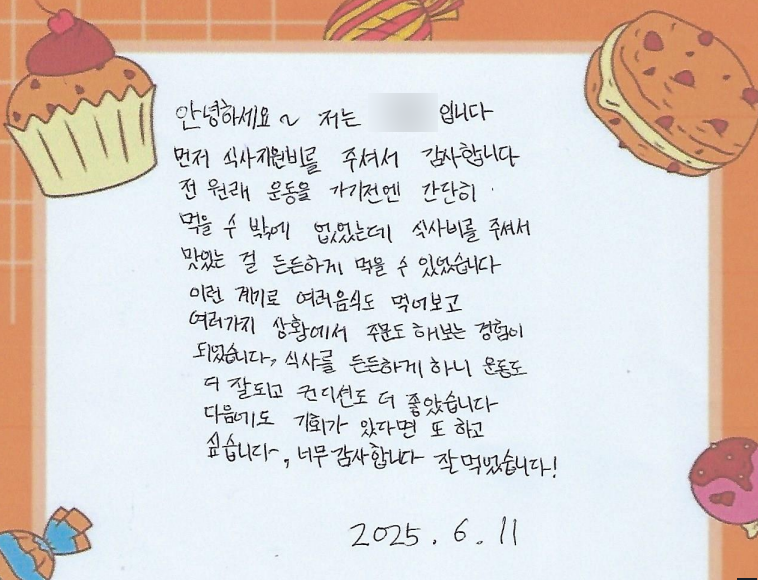 안녕하세요~ 저는 입니다
먼저 식사지원비를 주셔서 감사합니다
전 원래 운동을 가기전엔 간단히
먹을 수 밖에 없었는데 식사비를 주셔서
맛있는 걸 든든하게 먹을 수 있었습니다
이런 계기로 여러음식도 먹어보고
여러가지 상황에서 주문도 해보는 경험이
되었습니다, 식사를 든든하게 하니 운동도
더 잘되고 컨디션도 더 좋았습니다
다음에도 기회가 있다면 또 하고
싶습니다~, 너무 감사합니다 잘 먹었습니다!
2025. 6. 11